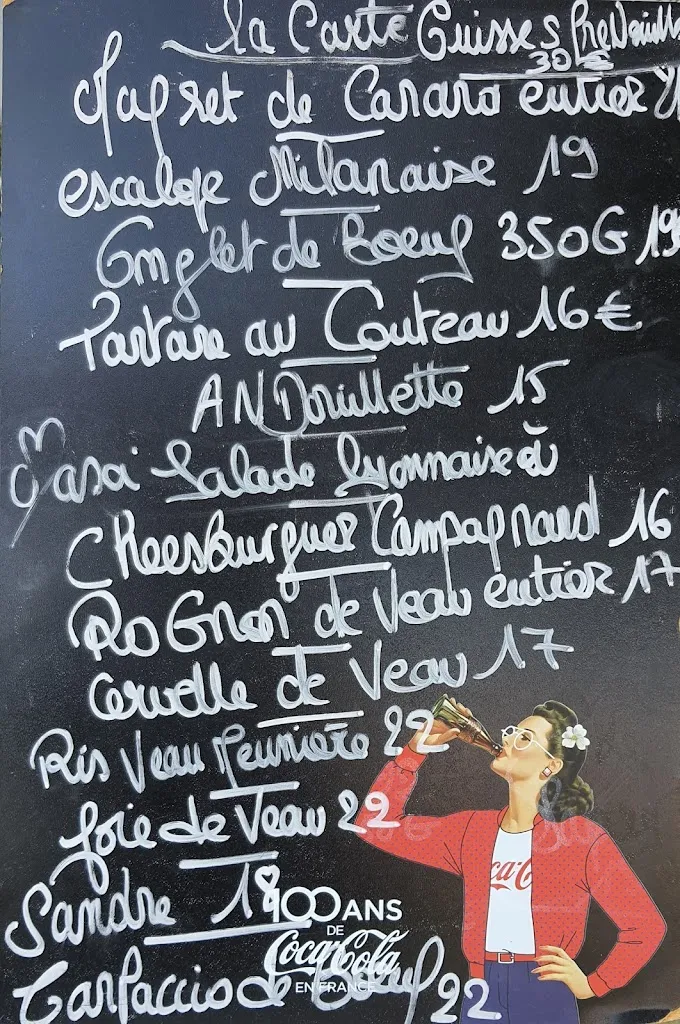 la Carte Cuisses
30€
Magret de Canard entier
escalope Milanaise 19
Onglet de Boeuf 350G 19
Tartare au Couteau 16€
ANDouillette 15
Salade Lyonnaise
Cheesburguer Campagnard 16
RoGnon de Veau entier 17
Cervelle de Veau 17
Ris Veau Meunière 22
foie de Veau 22
Sandre 18
100 ANS
DE
Coca-Cola
EN FRANCE
Carpaccio de Boeuf 22
Coca-C